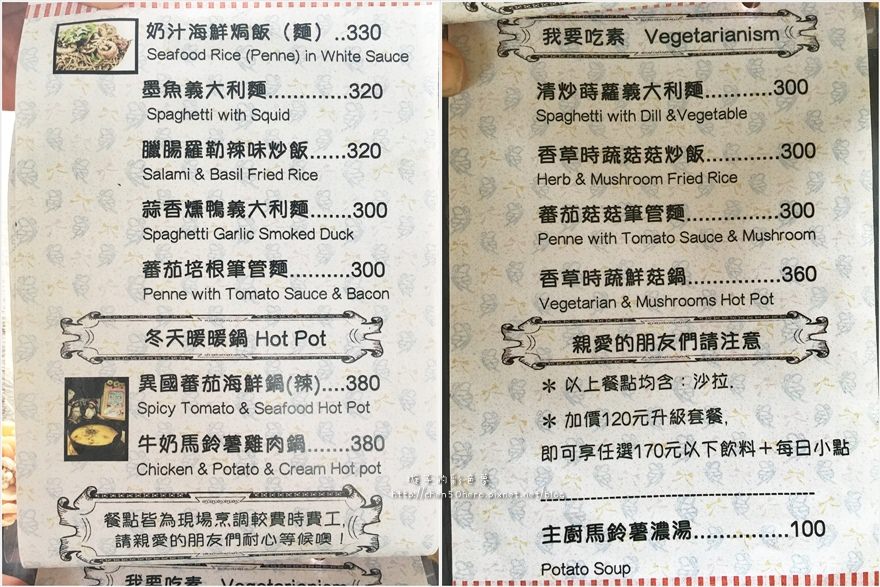 奶汁海鮮焗飯（麵）..330
Seafood Rice (Penne) in White Sauce
墨魚義大利麵............320
Spaghetti with Squid
臘腸羅勒辣味炒飯......320
Salami & Basil Fried Rice
蒜香燻鴨義大利麵.......300
Spaghetti Garlic Smoked Duck
番茄培根筆管麵...........300
Penne with Tomato Sauce & Bacon
冬天暖暖鍋 Hot Pot
異國番茄海鮮鍋(辣)....380
Spicy Tomato & Seafood Hot Pot
牛奶馬鈴薯雞肉鍋........380
Chicken & Potato & Cream Hot pot
餐點皆為現場烹調較費時費工,
請親愛的朋友們耐心等候噢！
我要吃素 Vegetarianism
我要吃素 Vegetarianism
清炒蒔蘿義大利麵............300
Spaghetti with Dill &Vegetable
香草時蔬菇菇炒飯............300
Herb & Mushroom Fried Rice
蕃茄菇菇筆管麵...............300
Penne with Tomato Sauce & Mushroom
香草時蔬鮮菇鍋...............360
Vegetarian & Mushrooms Hot Pot
親愛的朋友們請注意
＊ 以上餐點均含：沙拉.
＊ 加價120元升級套餐,
即可享任選170元以下飲料＋每日小點
主廚馬鈴薯濃湯...............100
Potato Soup